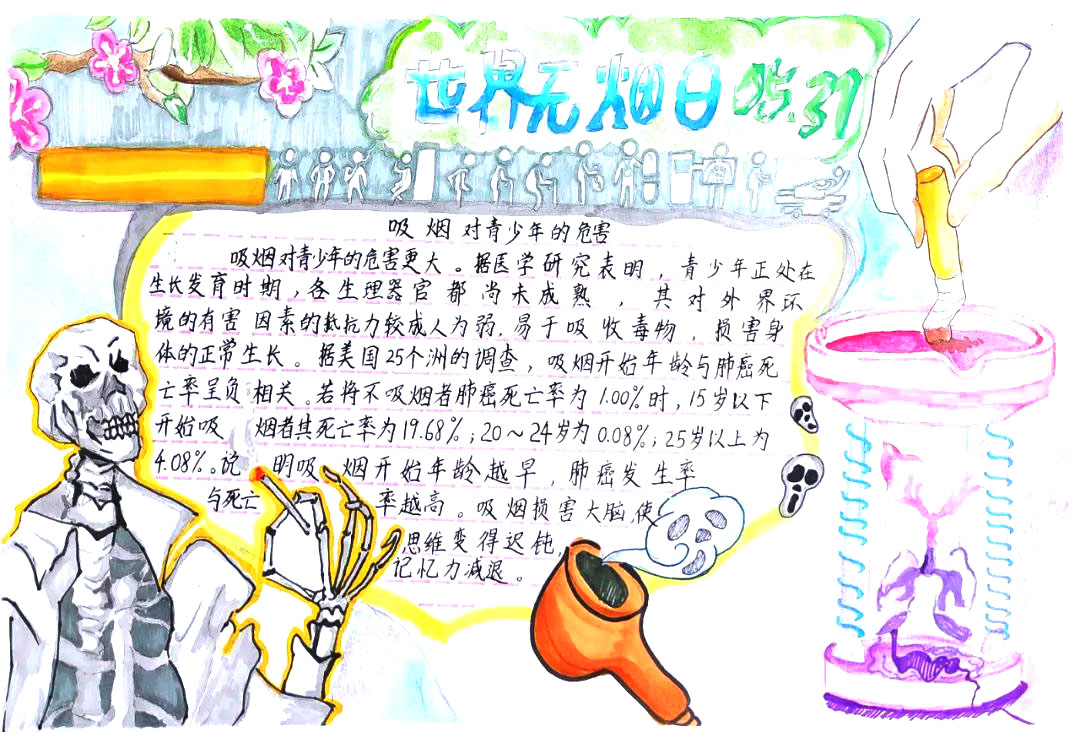 世界无烟日 05.31
吸烟对青少年的危害
吸烟对青少年的危害更大。据医学研究表明，青少年正处在
生长发育时期，各生理器官都尚未成熟，其对外界环
境的有害因素的抵抗力较成人为弱.易于吸收毒物，损害身
体的正常生长。据美国25个洲的调查，吸烟开始年龄与肺癌死
亡率呈负相关。若将不吸烟者肺癌死亡率为1.00%时,15岁以下
开始吸烟者其死亡率为19.68%;20～24岁为0.08%;25岁以上为
4.08%。说明吸烟开始年龄越早，肺癌发生率
与死亡率越高。吸烟损害大脑,使
思维变得迟钝,
记忆力减退。